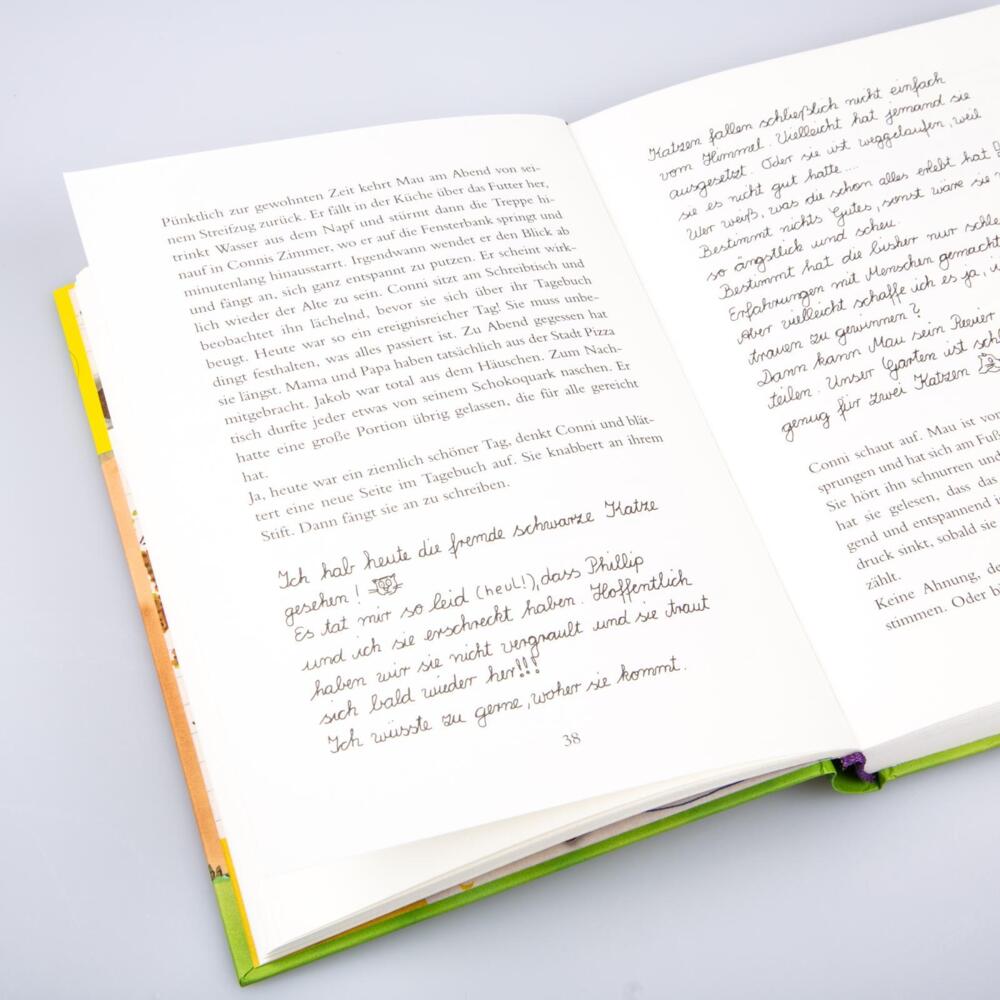 Pünktlich zur gewohnten Zeit kehrt Mau am Abend von sei-
nem Streifzug zurück. Er fällt in der Küche über das Futter her,
trinkt Wasser aus dem Napf und stürmt dann die Treppe hi-
nauf in Connis Zimmer, wo er auf die Fensterbank springt und
minutenlang hinausstarrt. Irgendwann wendet er den Blick ab
und fängt an, sich ganz entspannt zu putzen. Er scheint wirk-
lich wieder der Alte zu sein. Conni sitzt am Schreibtisch und
beobachtet ihn lächelnd, bevor sie sich über ihr Tagebuch
beugt. Heute war so ein ereignisreicher Tag! Sie muss unbe-
dingt festhalten, was alles passiert ist. Zu Abend gegessen hat
sie längst. Mama und Papa haben tatsächlich aus der Stadt Pizza
mitgebracht. Jakob war total aus dem Häuschen. Zum Nach-
tisch durfte jeder etwas von seinem Schokoquark naschen. Er
hatte eine große Portion übrig gelassen, die für alle gereicht
hat.
Ja, heute war ein ziemlich schöner Tag, denkt Conni und blät-
tert eine neue Seite im Tagebuch auf. Sie knabbert an ihrem
Stift. Dann fängt sie an zu schreiben.
Ich hab heute die fremde schwarze Katze
gesehen!
Es tat mir so leid (heul!), dass Phillip
und ich sie erschreckt haben. Hoffentlich
haben wir sie nicht vergrault und sie traut
sich bald wieder her!!!
Ich wüsste zu gerne, woher sie kommt.
38
Katzen fallen schließlich nicht einfach
vom Himmel. Vielleicht hat jemand sie
ausgesetzt. Oder sie ist weggelaufen, weil
sie es nicht gut hatte ...
Wer weiß, was die schon alles erlebt hat
Bestimmt nichts Gutes, sonst wäre sie
so ängstlich und scheu.
Bestimmt hat die bisher nur
Erfahrungen mit Menschen gemacht
Aber vielleicht schaffe ich es ja,
trauen zu gewinnen?
Dann kann Mau sein Revier
teilen. Unser Garten ist
genug für zwei Katzen
Conni schaut auf. Mau ist
sprungen und hat sich am
Sie hört ihn schnurren und
hat sie gelesen, dass das
gend und entspannend
druck sinkt, sobald sie
zählt.
Keine Ahnung,
stimmen. Oder